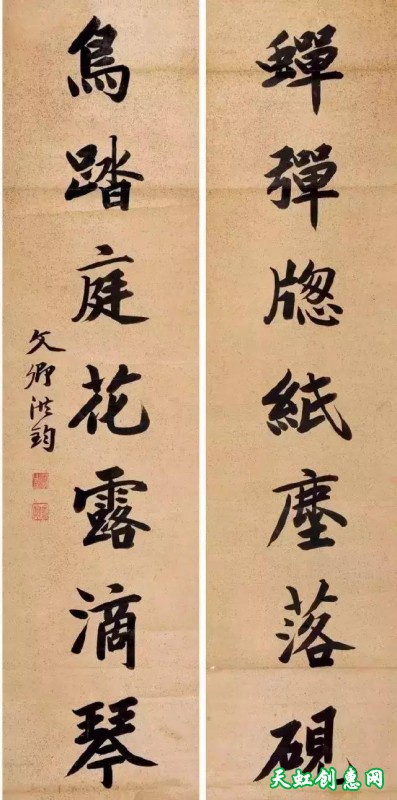 蟬彈牎紙塵落硯
鳥踏庭花露滴琴
文卿洪鈞
天虹创惠网